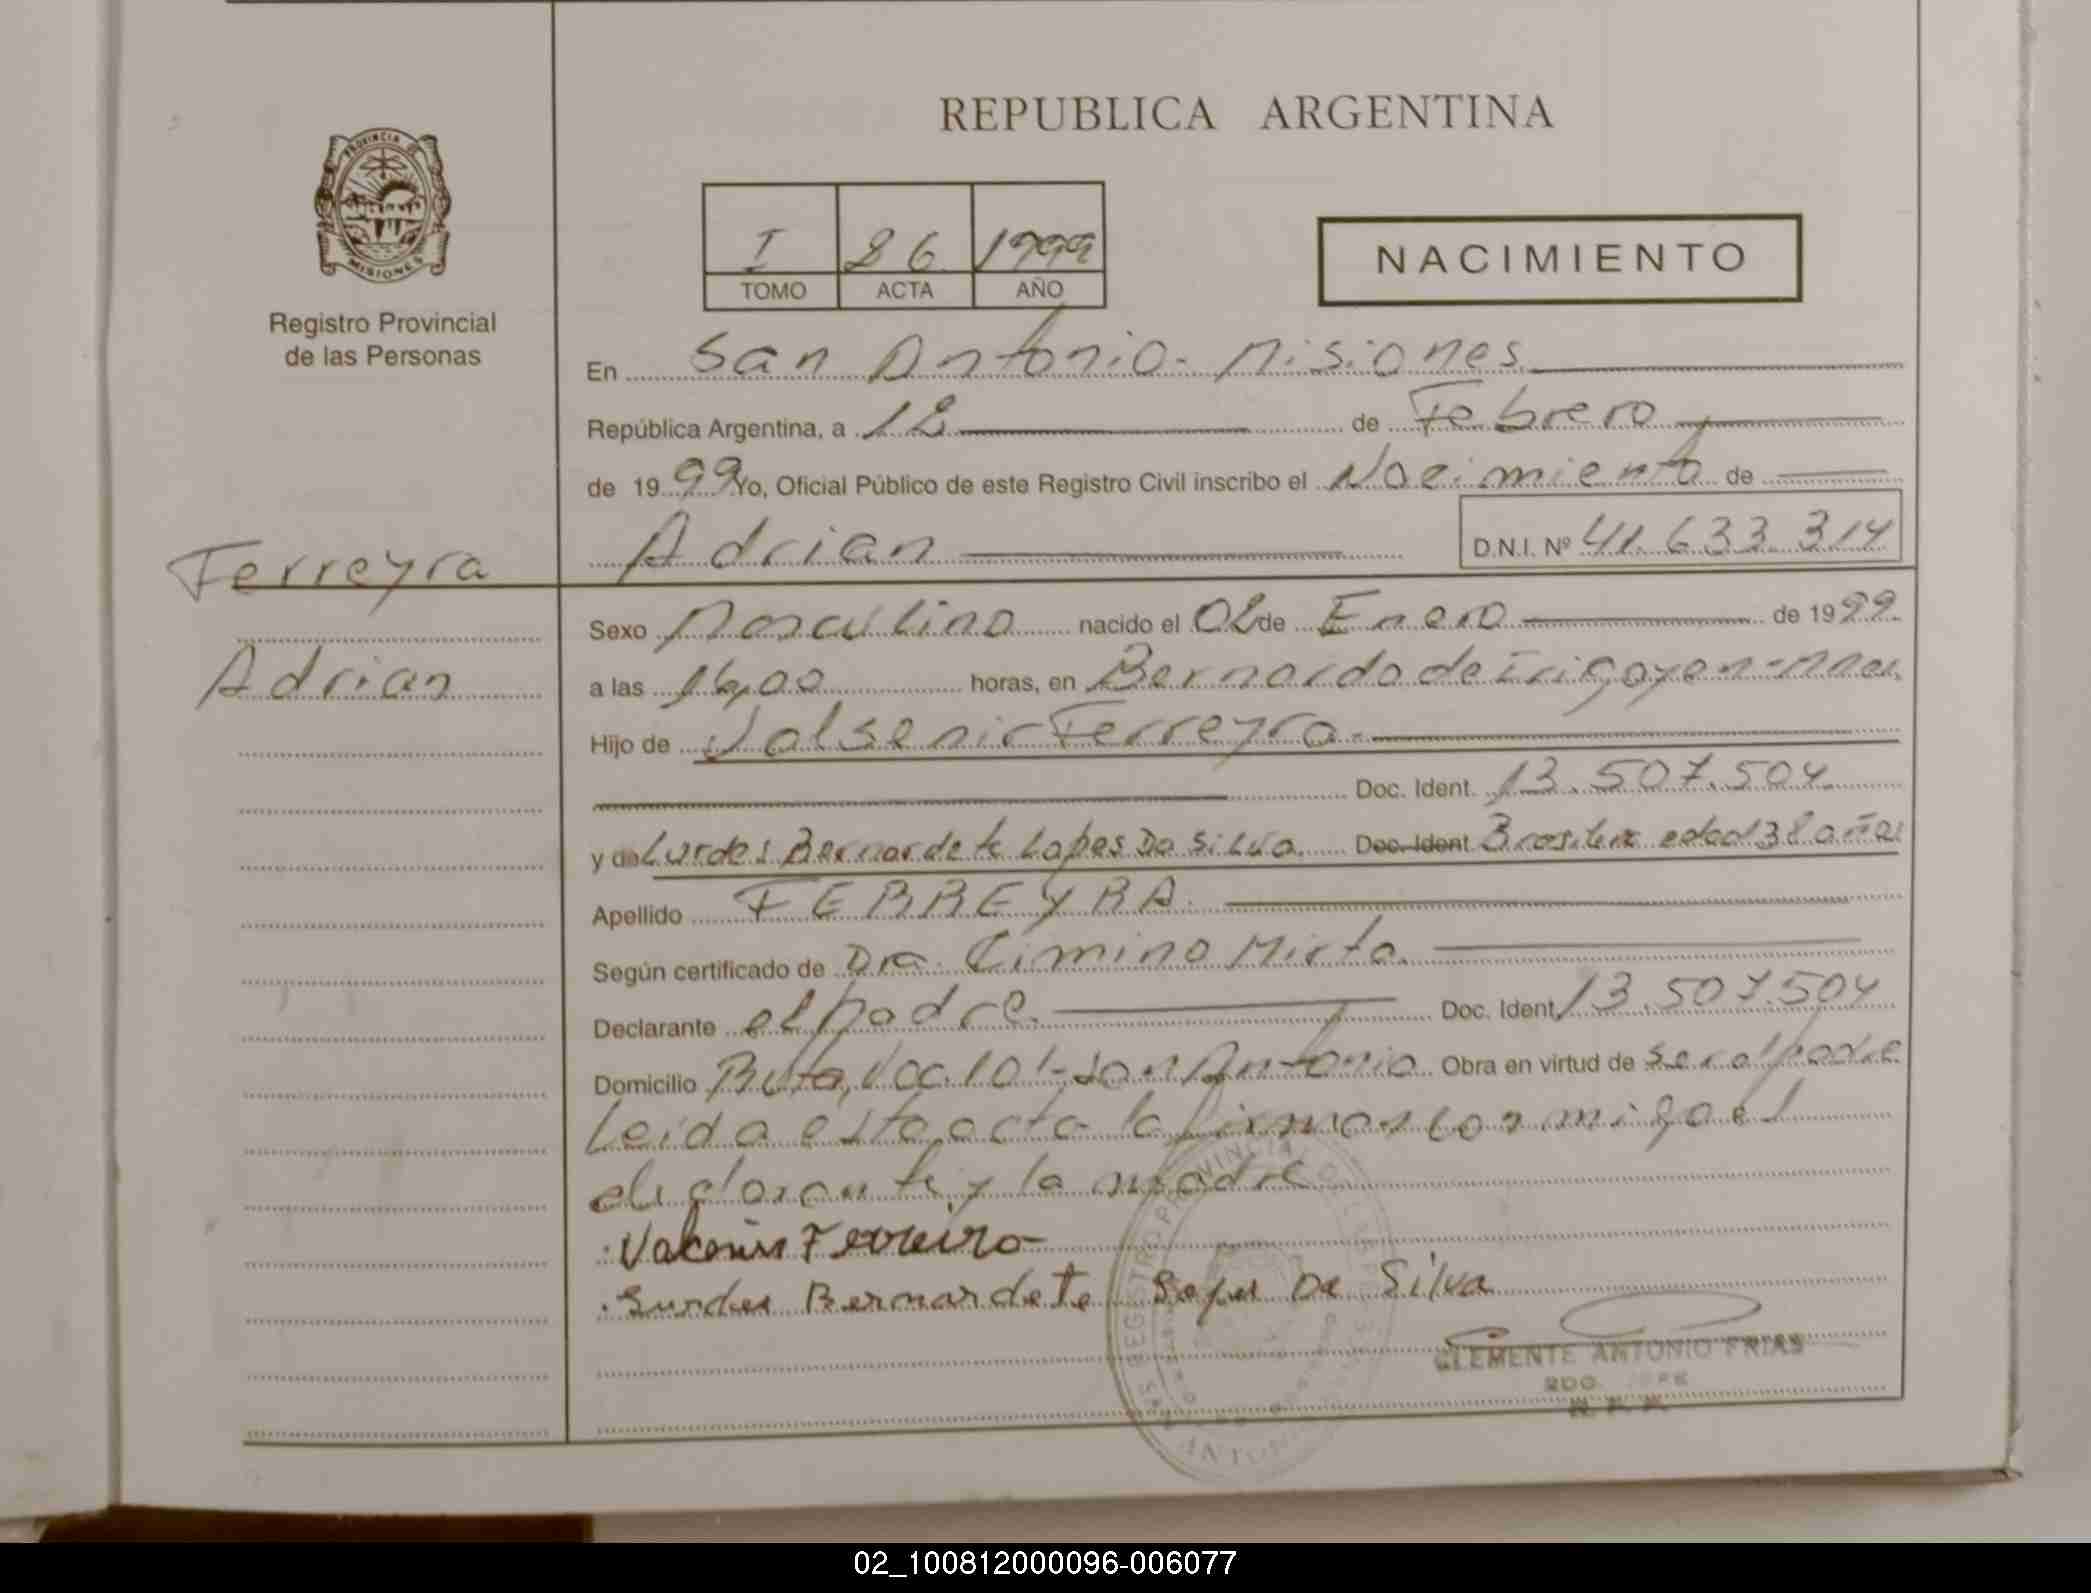 REPUBLICA ARGENTINA
PROVINCIA DE
MISIONES
Registro Provincial
de las Personas
I 26 1999
TOMO ACTA AÑO
NACIMIENTO
En San Antonio - Misiones
República Argentina, a 12 de Febrero
de 1999 Yo, Oficial Público de este Registro Civil inscribo el Nacimiento de
Adrian D.N.I. Nº 41.633.314
Ferreyra
Adrian
Sexo Masculino nacido el 02 de Enero de 1999
a las 16,00 horas, en Bernardo de Irigoyen - Mnes
Hijo de Valsenir Ferreyra
Doc. Ident. 13.507.504
y de Lurdes Bernardete Lopes Da Silva Doc. Ident. Brasilera edad 38 años
Apellido FERREYRA
Según certificado de Dra. Cimino Mirta
Declarante el padre Doc. Ident. 13.507.504
Domicilio Ruta, 101 - San Antonio Obra en virtud de ser el padre
Leida esta acta la firman conmigo el
y la madre
Ferreira
Lurdes Bernardete Lopes De Silva
CLEMENTE ANTONIO FRIAS
02_100812000096-006077